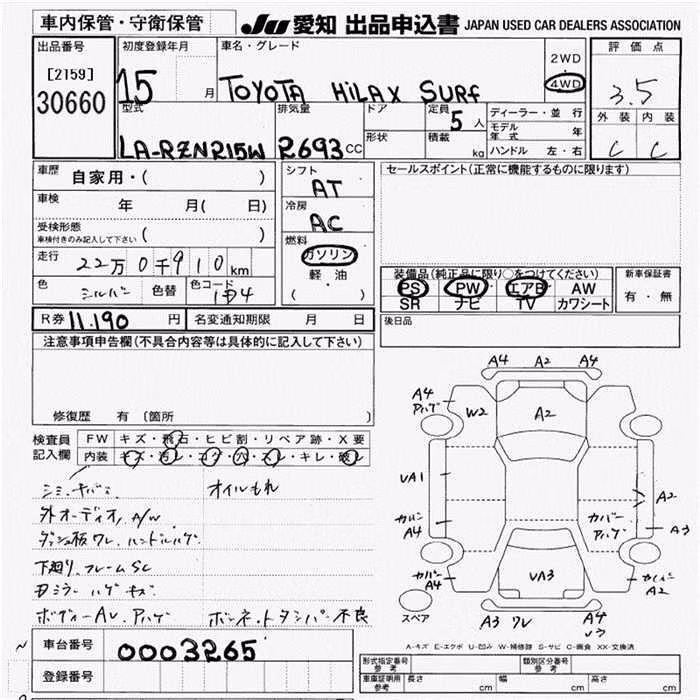 車内保管・守衛保管 JU 愛知 出品申込書 JAPAN USED CAR DEALERS ASSOCIATION
出品番号 初度登録年月 車名・グレード 2WD 評価点
[2159] 15 月 TOYOTA HiLAX SURf 4WD 3.5
30660
型式 排気量 ドア 定員 5人 ディーラー・並行 外装 内装
モデル 年
LA-RZN215W 2693CC 形状 積載 kg ハンドル 左・右 C C
車歴 自家用・( ) シフト AT セールスポイント(正常に機能するものに限ります)
車検 年 月( 日) 冷房 AC
受検形態 ( )
車検付きのみ記入して下さい
燃料 ガソリン
走行 22万0千910km 軽油
装備品(純正品に限り○をつけてください) 新車保証書
色 シルバー 色替 色コード 1D4 ( )
PS PW エアB AW 有・無
SR ナビ TV カワシート
R券 11,190 円 名変通知期限 月 日 後日品
注意事項申告欄(不具合内容等は具体的に記入して下さい)
修復歴 有 〔箇所
A4 A2 A4
A4 W2 A2
ハゲ
検査員 FW キズ・飛石・ヒビ割・リペア跡・X要
記入欄 内装 キズ・汚レ・コゲ・穴・スレ・キレ・破レ
シミ オイルもれ UA1 A2
外オーディオ A/W A4 カバー A3
ダッシュ板ワレ ハンドルハゲ ハゲ
下廻り、フレームSC カバー
A4 UA3 A2
ミラーハゲ キズ
ボディーAU ボンネットダンパー不良 スペア A3 ワレ A4
車台番号 0003265 A-キズ E-エクボ U-凹み W-補修跡 S-サビ C-腐食 XX-交換済
型式指定番号 参考 類別区分番号 参考
登録番号 車庫証明用 参考 長さ cm 幅 cm 高さ cm